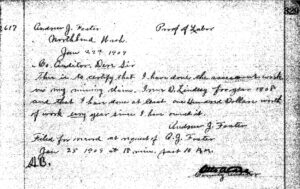 2617 Andrew J. Foster Proof of Labor
Northbend Wash
Jan 22nd 1909
Co. Auditor. Dear Sir
This is to certify that I have done the assessment work
on my mining claim. Irma D. Lindsey for year 1908
and that I have done at least one Hundred Dollars worth
of work every year since I have owned it.
Andrew J Foster
Filed for record at request of A.J. Foster
Jan 25 1909 at 18 min. past 10 A.M.
A.B.
County Auditor